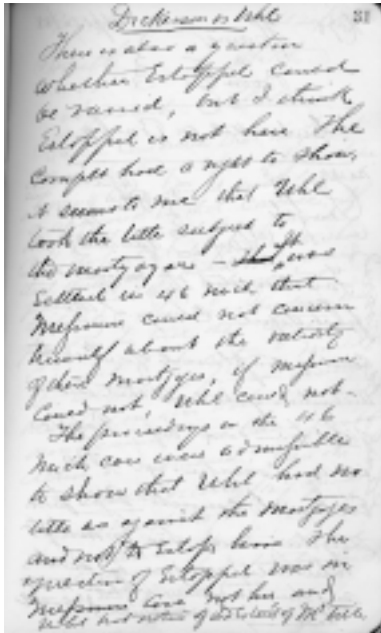 Dickerson vs Uhl 31
There is also a question
whether Estoppel could
be raised, but I think
Estoppel is not here The
Complt had a right to show,
it seems to me that Uhl
took the title subject to
the mortgage - it was
Settled in 46 Mich that
could not concern
himself about the validity
of these Mortgages, if
could not, Uhl could not -
The proceedings in the 46
Mich case were admissible
to show that Uhl had no
title as against the Mortgages
and not to Estop him The
question of Estoppel was in
case not her and
Uhl had notice of title